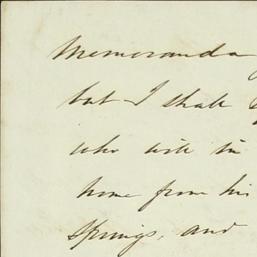 Memoranda
but I shall
who will in
home from his
Springs, and